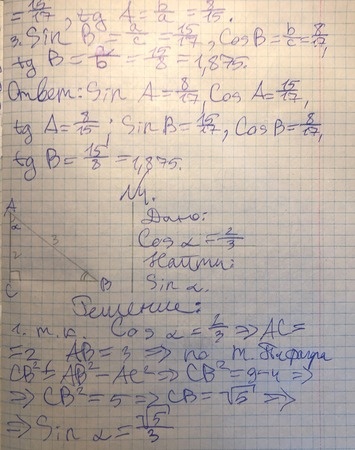 = 15/17, tg A = b/a = 8/15.
3. Sin B = a/c = 15/17, Cos B = b/c = 8/17,
tg B = a/b = 15/8 = 1,875.
Ответ: Sin A = 8/17, Cos A = 15/17,
tg A = 8/15; Sin B = 15/17, Cos B = 8/17,
tg B = 15/8 = 1,875.
A
α
3
2
C
B
Дано:
Cos α = 2/3
Найти:
Sin α.
Решение:
1. т.к. Cos α = 2/3 => AC =
= 2 AB = 3 => по т. Пифагора
CB² = AB² - AC² => CB² = 9 - 4 =>
=> CB² = 5 => CB = √5 =>
=> Sin α = √5/3